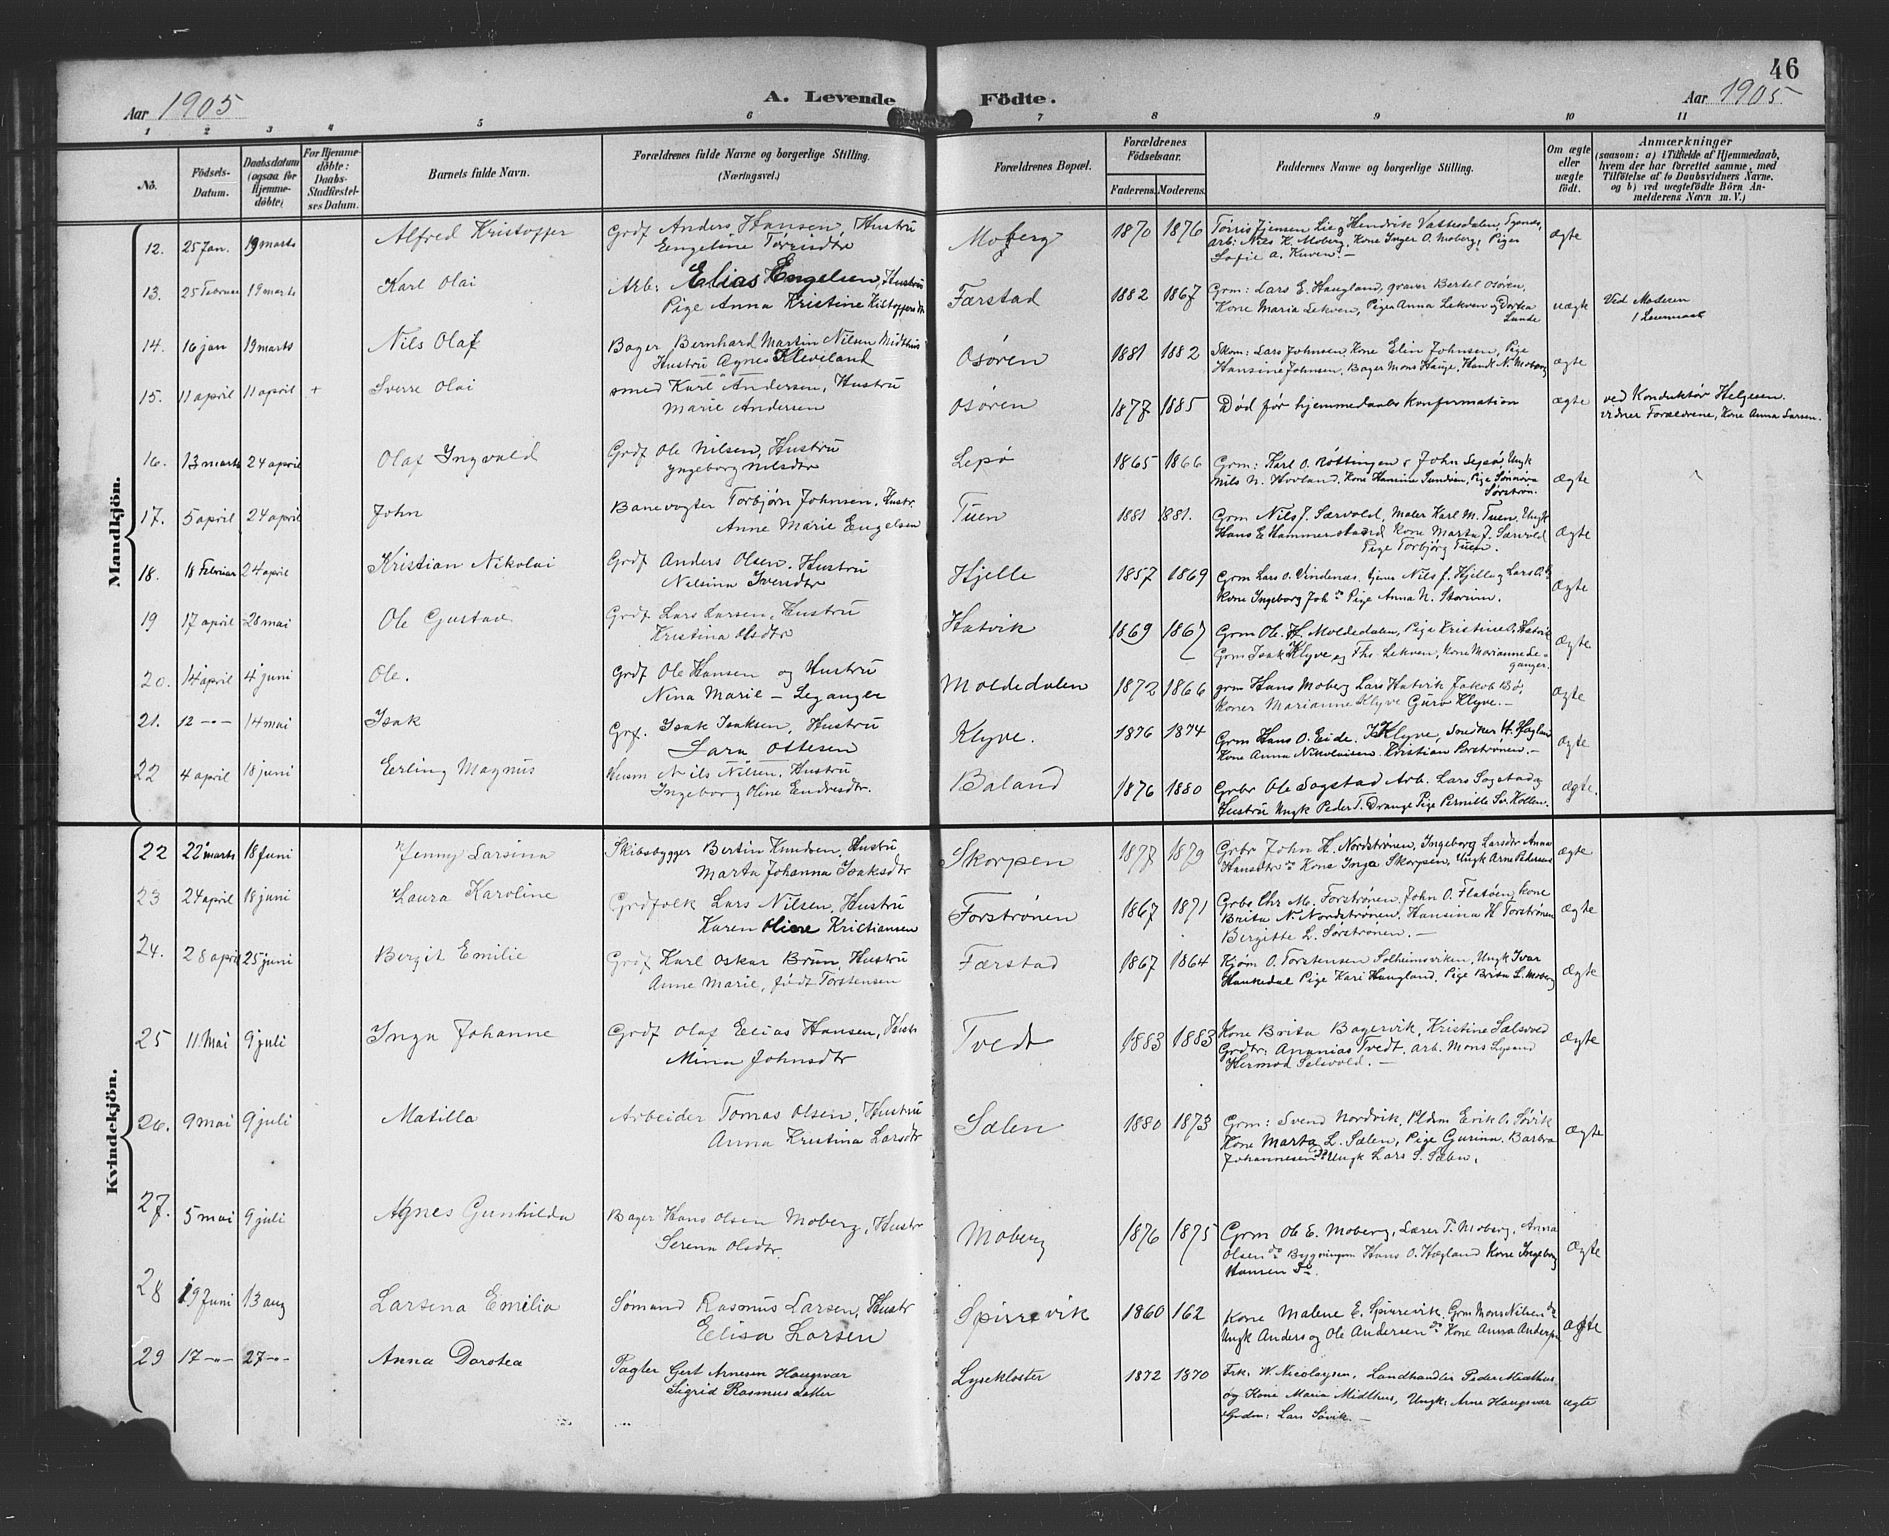 46
Aar 1905 A. Levende Födte. Aar 1905
1 2 3 4 5 6 7 8 9 10 11
No.
Födsels-Datum.
Daabsdatum (ogsaa for Hjemme-döbte)
For Hjemme-döbte: Daabs-Stadfæstel-ses Datum.
Barnets fulde Navn.
Forældrenes fulde Navne og borgerlige Stilling.
(Næringsvei.)
Forældrenes Bopæl.
Forældrenes Födselsaar.
Faderens. Moderens.
Faddernes Navne og borgerlige Stilling.
Om ægte eller uægte födt.
Anmærkninger
(saasom: a) i Tilfælde af Hjemmedaab,
hvem der har forrettet samme, med
Tilföielse af to Daabsvidners Navne.
og b) ved uægtefödte Börn An-
melderens Navn m. V.)
Mandkjön.
12. 25 Jan. 19 marts Alfred Kristoffer Grdf Anders Hansen, Hustru
Engeline Tørrisdtr Moberg 1870 1876 ægte
arb: Nils K. Moberg, Kone Inger O. Moberg, Pige
Sofie A. Kuven. —
13. 25 Februar 19 marts Karl Olai Arb: Elias Engelsen, Hustru
Pige Anna Kristine Færstad 1882 1867 Grm: Lars E. Haugland, graver Bertel Osören,
Kone Maria Lekven, Pige Anna Lekven og Dortea
Lunde uægte Ved Moderen
14. 16 jan 19 marts Nils Olaf Bager Bernhard Martin Nilsen Midthus
Hustru Agnes Kleveland Osören 1881 1882 Skom: Lars Johnsen, Kone Elin Johnsen, Pige
Hansine Johnsen, Bager Mons Hauge, Handl N. Moberg ægte
15. 11 april 11 april + Sverre Olai smed Karl Andersen, Hustru
Marie Andersen Osören 1877 1885 Död för hjemmedaabs konfirmation ægte ved Konduktör Helgesen.
vidner Forældrene, Kone Anna Larsen.
16. 13 marts 24 april Olaf Ingvald Grdf Ole Nilsen, Hustru
Yngeborg Nilsdtr Lepö 1865 1866 Grm: Karl O. Röttingen, John Lepsö Ungk
Nils N. Hovland, Kone Hansine Sundöen, Pige
Sörström. ægte
17. 5 april 24 april John Banevogter Torbjörn Johnsen, Hustr.
Anne Marie Engelsen Tuen 1881 1881. Grm Nils J. Særvold, Maler Karl M. Tuen, Ungk
Hans E Hammersland Kone Marta J. Særvold
Pige Torbjörg Tuen. ægte
18. 18 Februar 24 april Kristian Nikolai Grdf Anders Olsen. Hustru
Nilsina Iversdtr Hjelle 1857 1869 Grm Lars O. Vindenæs, tjener Nils J. Hjelle og Lars
Kone Ingeborg Joh do Pige Anna N. Storum. ægte
19 17 april 28 mai Ole Gustav Grdf Lars Larsen, Hustru
Kristina Olsdtr Hatvik 1869 1867 Grm Ole. H. Moldedalen, Pige Kristine O. Hatvik
Grm Isak Klyve og Ths Lekven, Kone Marianne Le-
ganger. ægte
20. 14 april 4 juni Ole. Grdf Ole Hansen og Hustru
Nina Marie — Leganger Moldedalen 1872 1866 grm Hans Moberg Lars Hatvik Jakob Bö,
koner Marianne Klyve Guro Klyve. — ægte
21. 12 -"- 14 mai Isak Grf. Isak Isaksen, Hustru
Lara Ottesen Klyve. 1876 1874 Grm Hans O. Eide. Klyve, Snedker
Kone Anna Nikolaisen. Kristian Forströnen. — ægte
22 4 april 18 juni Erling Magnus Husm Nils Nilsen. Hustru
Ingeborg Oline Endresdtr. Baland 1876 1880 Grbr Ole Sagstad Arb. Lars Sagstad og
Hustru Ungk Peder T. Drange Pige Pernille Sv. Hollen. ægte.
Kvindekjön.
22 22 marts 18 Juni Jenny Larsina Skibsbygger Bertin Knudsen, Hustru
Marta Johanna Isaksdtr Skorpen 1877 1879 Grbr John H. Nordströnen, Ingeborg Larsdtr Anna
Hansdtr do Kone Inga Skorpen, Ungk Arne Pedersen ægte
23 24 april 18 juni Laura Karoline Grdfolk Lars Nilsen, Hustru
Karen Oline Kristiansen Forströnen 1867 1871 Grbr Chr M. Forströnen, John O. Flatöen, kone
Brita N. Nordströnen, Hansina H Forströnen
Bergitte L. Sörströnen. — ægte
24. 28 april 25 juni Bergit Emilie Grdf Karl Oskar Brun, Hustru
Anne Marie, födt Torstensen Færstad 1867 1864 Kjöm O. Torstensen Solheimsviken, Ungk Ivar
Haukedal Pige Kari Haugland, Pige Brita L. Moberg ægte
25 11 Mai 9 juli Inga Johanne Grdf Olaf Elias Hansen, Hustr
Mina Johnsdtr Tvedt 1883 1883 Kone Brita Bagervik, Kristine Sælsvold
Grdtr: Ananias Tvedt, arb. Mons Lysand
Hermod Selsvold. — ægte
26. 9 mai 9 juli Matilla Arbeider Tomas Olsen, Hustru
Anna Kristina Larsdtr Sælen 1880 1873 Grm: Svend Nordvik, Pldm Erik O. Sövik
Kone Marta L. Sælen, Pige Gurina. Barbra
Johannesen do Ungk Lars S. Sælen. ægte
27. 5 mai 9 juli Agnes Gunhilda Bager Hans Olsen Moberg, Hustr
Serena Olsdtr. Moberg 1876 1875 Grm Ole E. Moberg, Lærer T. Moberg, Anna
Olsen do Bygningsm Hans O. Hægland Kone Ingeborg
Hansen do. ægte
28 19 Juni 13 aug Larsena Emilia Sömand Rasmus Larsen, Hustr
Elisa Larsen Spirrevik 1860 162 Kone Malene E. Spirrevik. Grm Mons Nilsen do
Ungk Anders og Ole Andersen do Kone Anna Anderssen ægte
29 17 -"- 27 -"- Anna Dorotea Pagter Gert Arnesen Haugsvær
Sigrid Rasmusdatter Lysekloster 1872 1870 Frk: W. Nicolaysen, Landhandler Peder Midthus
og Kone Maria Midthus, Ungk: Arne Haugsvær
Grdm: Lars Sövik. — ægte